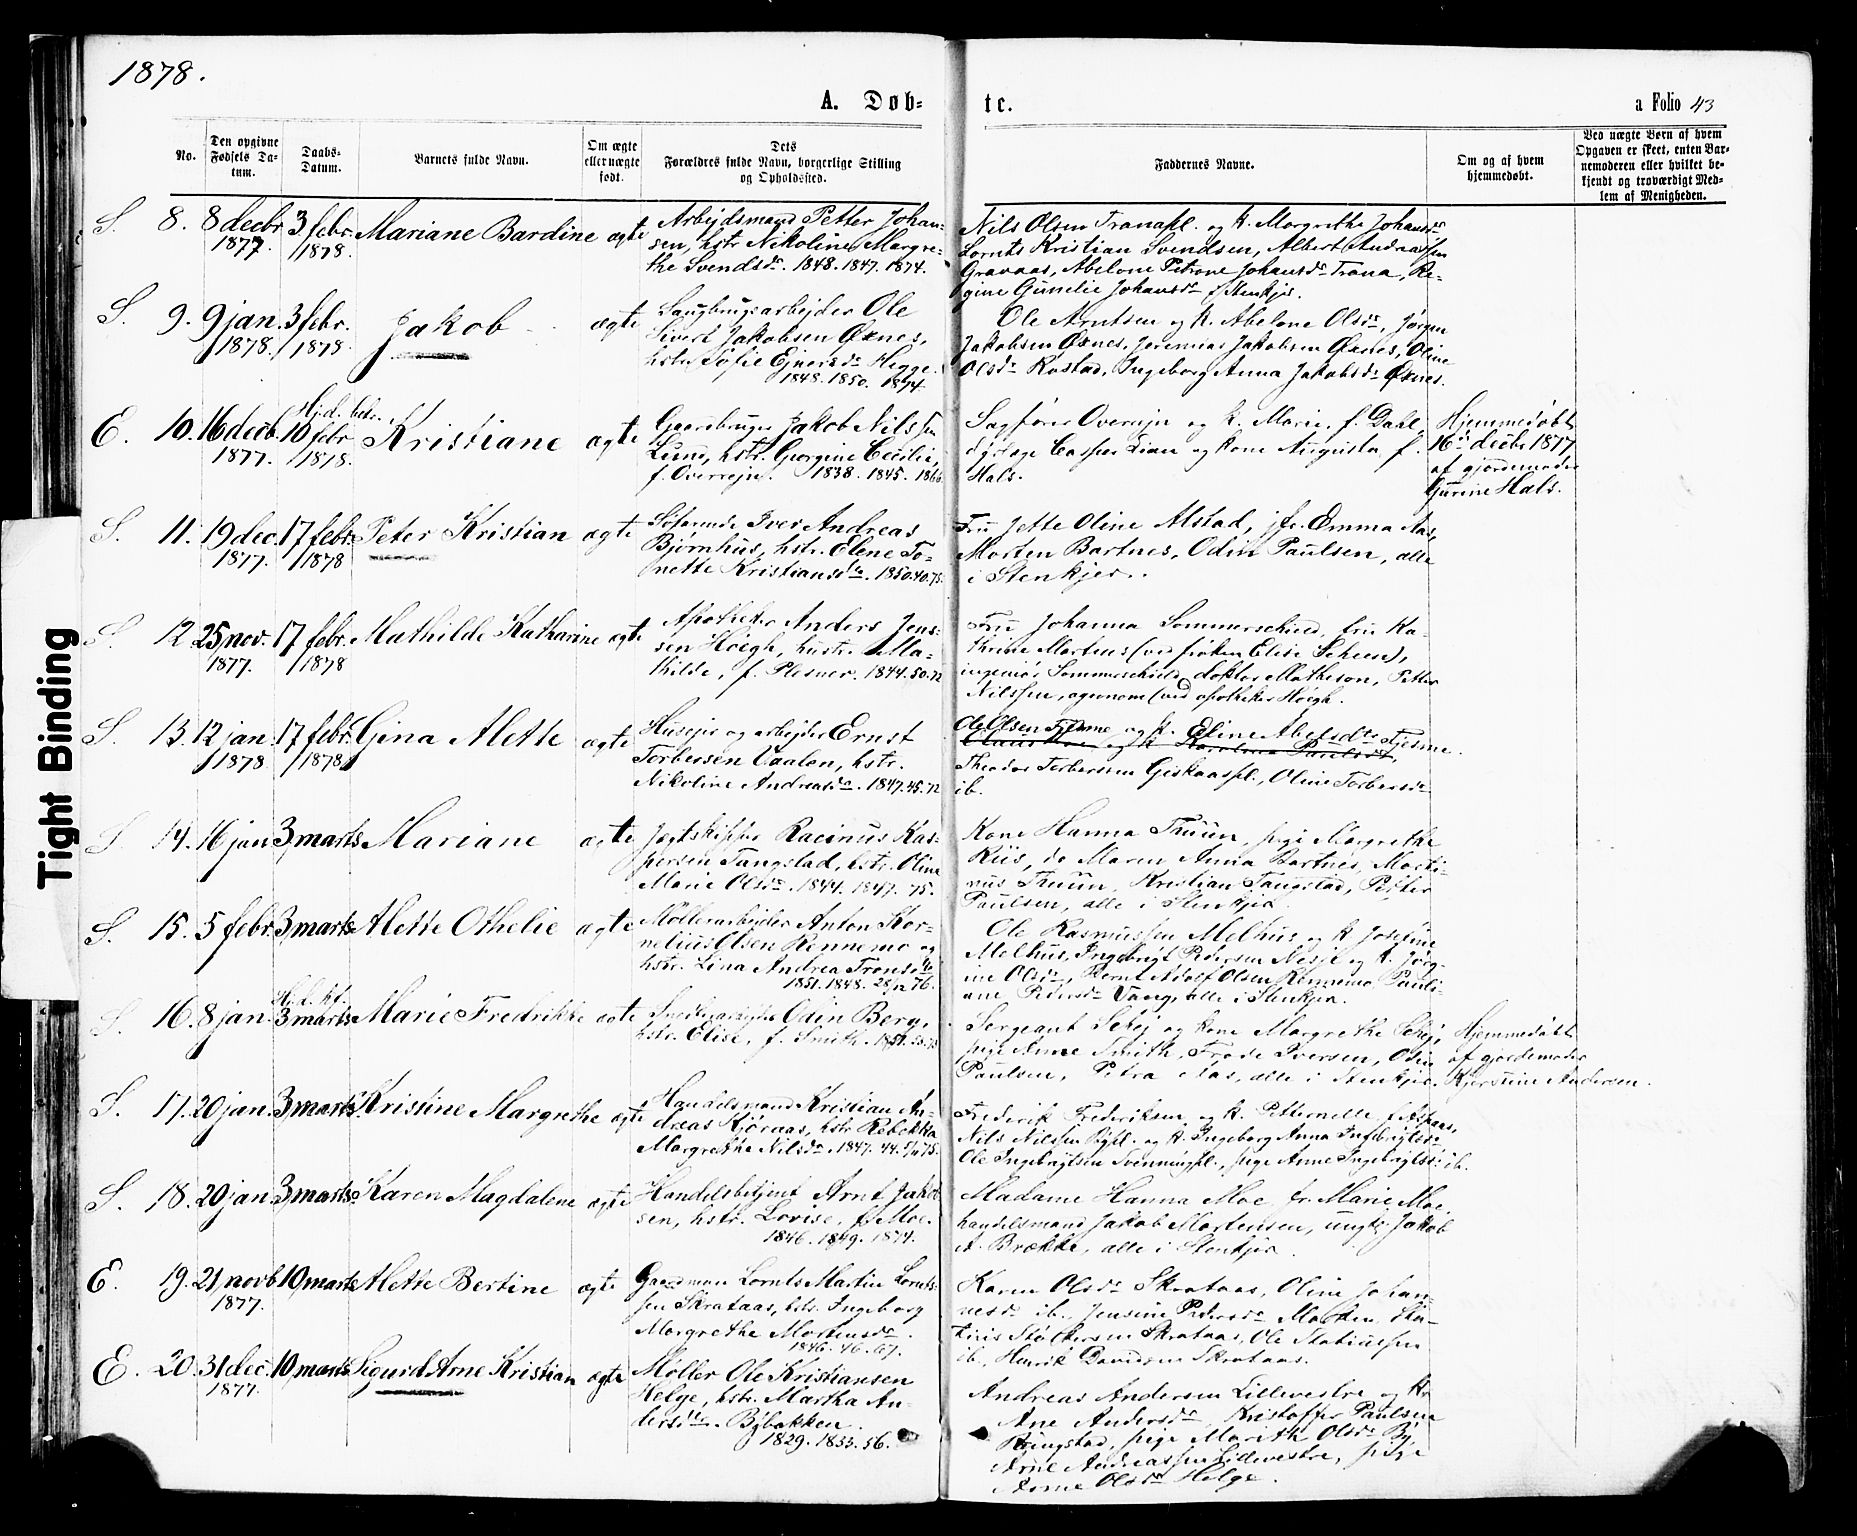 1878.
A. Døb- te. a Folio 43
No.
Den opgivne Fødsels Datum.
Daabs-Datum.
Barnets fulde Navn.
Om ægte eller uægte født.
Dets Forældres fulde Navn, borgerlige Stilling og Opholdssted.
Faddernes Navne.
Om og af hvem hjemmedøbt.
Ved uægte Børn af hvem
Opgaven er skeet, enten Bar-
nemoderen eller hvilket be-
kjendt og troværdigt Med-
lem af Menigheden.
S. 8. 8 decbr 1877. 3 febr. 1878. Mariane Bardine ægte
Arbejdsmand Petter Johan-
sen, hstr. Nikoline Margre-
the Svendsdr. 1848. 1847. 1874.
Nils Olsen Tranapl. og k. Margrethe Johansdr
Lornts Kristian Svendsen, Albert Andreassen
Gravaas, Abelone Petrone Johansdr Trana, Re-
gine Gunelie Johansdr, Stenkjer.
S. 9. 9 jan. 1878. 3 febr. 1878 Jakob ægte
Saugbrugsarbejder Ole
Sivert Jakobsen Øxnes,
hstr. Sofie Ejnersdr Hegge.
1848. 1850. 1874.
Ole Arntsen og k. Abelone Olsdr, Jørgen
Jakobsen Øxnes, Jeremias Jakobsen Øxnes, Oline
Olsdr Rostad, Ingeborg Anna Jakobsdr Øxnes.
E. 10. 16 decb. 1877. Hj.d. bekr. 10 febr 1878. Kristiane ægte
Gaardbruger Jakob Nilssen
Lund, hstr. Georgine Cecilie,
f. Overrejn. 1838. 1845.
Sagfører Overrejn og k. Marie f. Dahl,
Casper Lian og kone Augusta f.
Hals.
Hjemmedøbt
16de decbr 1877
af gjordemoder
Gurine Hals.
S. 11. 19 dec. 1877. 17 febr. 1878 Peter Kristian ægte
Søfarende Iver Andreas
Bjørnhus, hstr. Elene To-
nette Kristiansdtr. 1850. 40. 75.
Fru Jette Oline Alstad, jfr. Emma Aas,
Morten Bartnes, Odin Paulsen, alle
i Stenkjer.
S. 12. 25 nov. 1877. 17 febr. 1878 Mathilde Katharine ægte
Apotheker Anders Jens-
sen Høegh, hustr. Ma-
thilde, f. Plesner. 1844. 50. 72
Fru Johanna Sommerschield, fru Ka-
thrine Martens (ved frøken Elise Scheen),
ingeniør Sommerschield, doktor Matheson, Petter
Nilssen, agronom (ved apotheker Høegh.
S. 13. 12 jan. 1878. 17 febr. 1878 Gina Alette ægte
Husejer og arbejder Ernst
Torbersen Vaalen, hstr.
Nikoline Andreasdr. 1847. 45. 72
Ole Olsen Fjesme og k. Eline Abelsdtr Fjesme.
Theodor Torbersen Giskaaspl., Oline Torbersdr
ib.
S. 14. 16 jan. 3 marts Mariane ægte
Jægtskipper Racinus Kas-
persen Tangstad, hstr. Oline
Marie Olsdr. 1844. 1847. 75.
Kone Hanna Thuun, pige Margrethe
Riis, do Maren Anna Bartnes, Marti-
nus Thuun, Kristian Tangstad, Peter
Paulsen, alle i Stenkjer.
S. 15. 5 febr. 3 marts Alette Othelie ægte
Møllerarbejder Anton Kor-
nelius Olsen Rennemo og
hstr. Lina Andrea Tronsdtr
1851. 1848. 28/12 76.
Ole Rasmussen Melhus og k. Josefine
Melhus, Ingebrigt Pedersen Nesje og k. Jørg-
ine Olsdr, Bernt Adolf Olsen Rennemo, Pauli-
ane Pedersdr Vang, alle i Stenkjer.
S. 16. 8 jan. Hj.d. 3 marts Marie Fredrikke ægte
Snedkerarbejder Odin Berg,
hstr. Elise, f. Smith. 1851.
Sergeant Schej og kone Margrethe Schej,
pige Anne Smith, Frode Iversen, Odin
Paulsen, Petra Aas, alle i Stenkjer.
Hjemmedøbt
af gjordemoder
Kjerstine Andersen.
S. 17. 20 jan. 3 marts Kristine Margrethe ægte
Handelsmand Kristian An-
dreas Kjøraas, hstr. Rebekka
Margrethe Nilsdr. 1847. 44. 75.
Frederik Frederiksen og k. Petternelle f. Aspaas,
Nils Nilssen Bypl. og k. Ingeborg Anna Ingebrigtsdr
Ole Ingebrigtsen Svenningpl., pige Anne Ingebrigtsdr ib.
S. 18. 20 jan. 3 marts Karen Magdalene ægte
Handelsbetjent Arnt Jakob-
sen, hstr. Lovise, f. Moe.
1846. 1849. 1874.
Madame Hanna Moe, fr. Marie Moe,
handelsmand Jakob Mortensen, ungk. Jakob
A. Brække, alle i Stenkjer.
E. 19. 21 novb 1877. 10 marts Alette Bertine ægte
Gaardman Lornts Martin Lornts-
sen Skrataas, hstr. Ingeborg
Margrethe Mortensdr.
1846. 46. 67.
Karen Olsdr Skrataas, Oline Johan-
nesdr ib., Jensine Pedersdr Marken, Sta-
tius Skrataas, Ole Statiussen
ib., Henrik Davidsen Skrataas.
E. 20. 31 dec. 1877. 10 marts Sigurd Arne Kristian ægte
Møller Ole Kristiansen
Helge, hstr. Martha An-
dersdtr. Bybakken.
1829. 1833. 56.
Andreas Andersen Lillevestre og k.
Ane Andersdr, Kristoffer Paulsen
Ringstad, pige Marith Olsdr By,
Arne Andreassen Lillevestre, pige
Anne Olsdr Helge.
Tight Binding